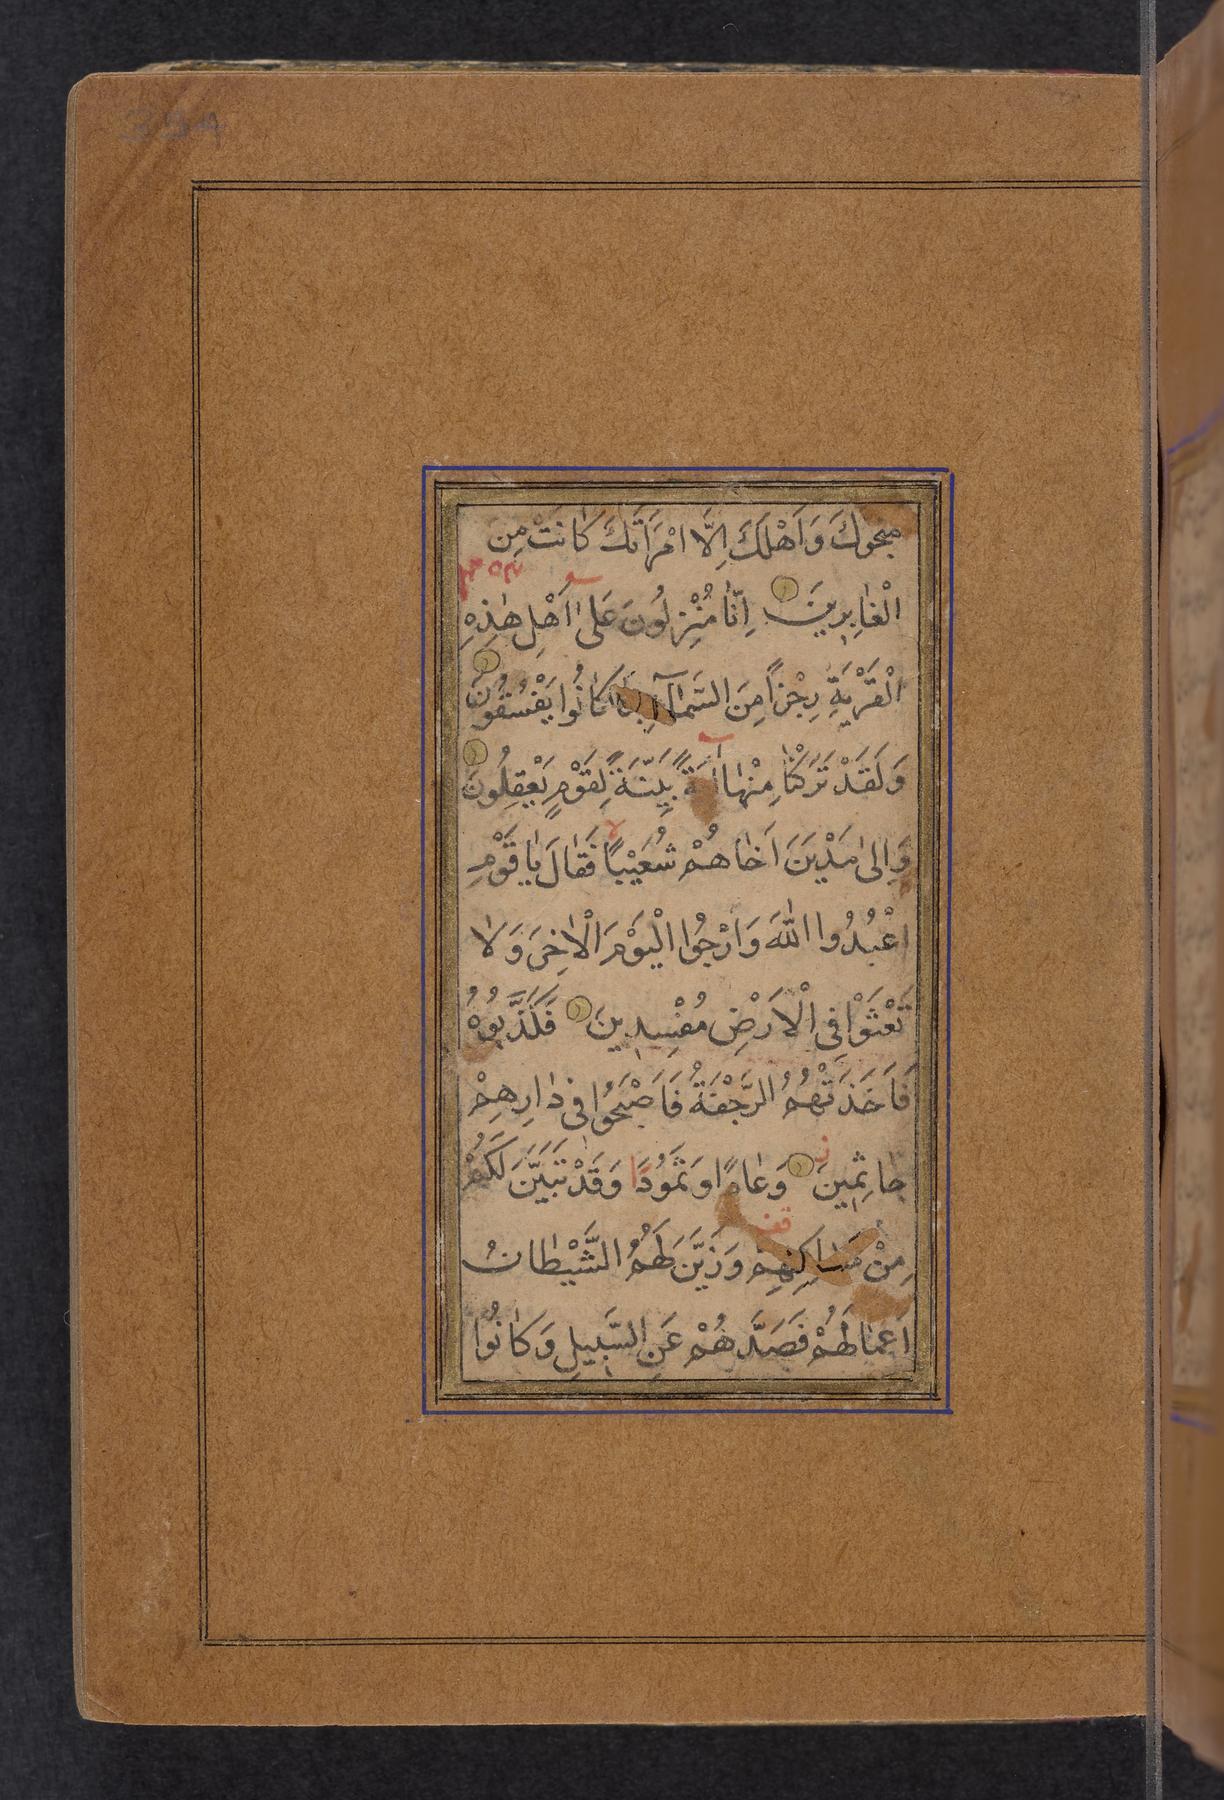 394
منجوك وَاَهْلَكَ اِلَّا امْرَاَتَكَ كَانَتْ مِنَ
الْغَابِرِينَ اِنَّا مُنْزِلُونَ عَلٰى اَهْلِ هٰذِهِ
الْقَرْيَةِ رِجْزًا مِنَ السَّمَآءِ بِمَا كَانُوا يَفْسُقُونَ
وَلَقَدْ تَرَكْنَا مِنْهَا اٰيَةً بَيِّنَةً لِقَوْمٍ يَعْقِلُونَ
وَاِلٰى مَدْيَنَ اَخَاهُمْ شُعَيْبًا فَقَالَ يَا قَوْمِ
اعْبُدُوا اللّٰهَ وَارْجُوا الْيَوْمَ الْاٰخِرَ وَلَا
تَعْثَوْا فِى الْاَرْضِ مُفْسِدِينَ فَكَذَّبُوهُ
فَاَخَذَتْهُمُ الرَّجْفَةُ فَاَصْبَحُوا فِى دَارِهِمْ
جَاثِمِينَ وَعَادًا وَثَمُودَا وَقَدْ تَبَيَّنَ لَكُمْ
مِنْ مَسَاكِنِهِمْ وَزَيَّنَ لَهُمُ الشَّيْطَانُ
اَعْمَالَهُمْ فَصَدَّهُمْ عَنِ السَّبِيلِ وَكَانُوا